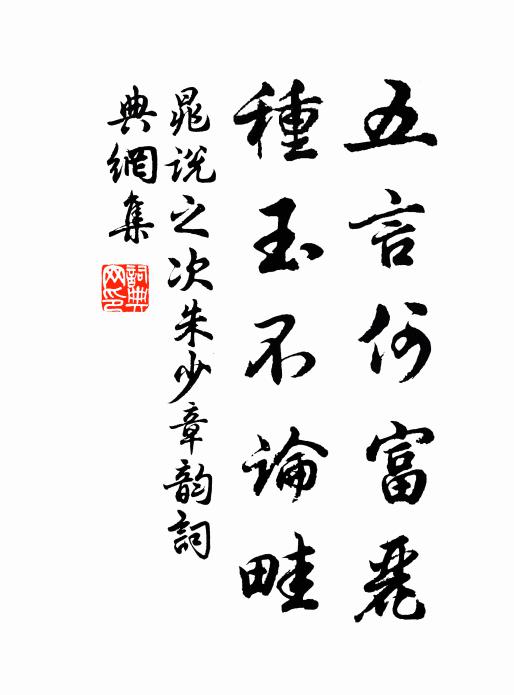 五言何富麗
種玉不論畦
晁說之次朱少章韵詞
典網集
詞典网印